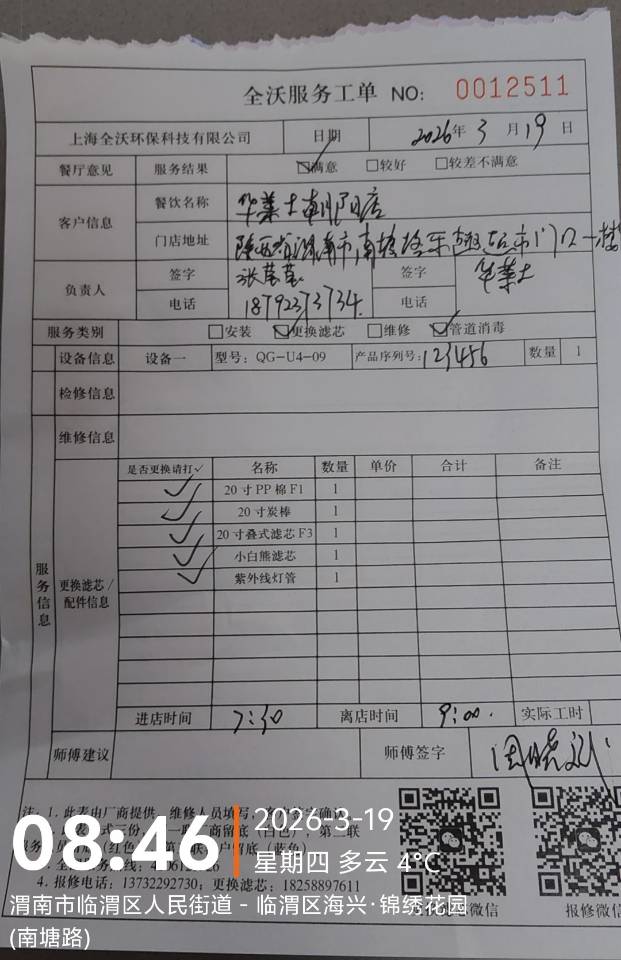 全沃服务工单 NO: 0012511
上海全沃环保科技有限公司 日期 2026年3月19日
餐厅意见 服务结果 满意 较好 较差不满意
客户信息 餐饮名称 华莱士朝阳店
门店地址 陕西省渭南市南塘路乐超超市门口一楼
负责人 签字 张莹莹 签字 华莱士
电话 18792373734 电话
服务类别 安装 更换滤芯 维修 管道消毒
设备信息 设备一 型号: QG-U4-09 产品序列号: 123456 数量 1
检修信息
维修信息
服务信息
更换滤芯/
配件信息
是否更换请打✓ 名称 数量 单价 合计 备注
✓ 20寸PP棉F1 1
✓ 20寸炭棒 1
✓ 20寸叠式滤芯F3 1
✓ 小白熊滤芯 1
✓ 紫外线灯管 1
进店时间 7:30 离店时间 9:00. 实际工时
师傅建议 师傅签字
注: 1. 此表由厂商提供
4. 报修电话: 13732292730; 更换滤芯: 18258897611
报修微信
08:46
2026-3-19
星期四 多云 4℃
渭南市临渭区人民街道 - 临渭区海兴·锦绣花园
(南塘路)